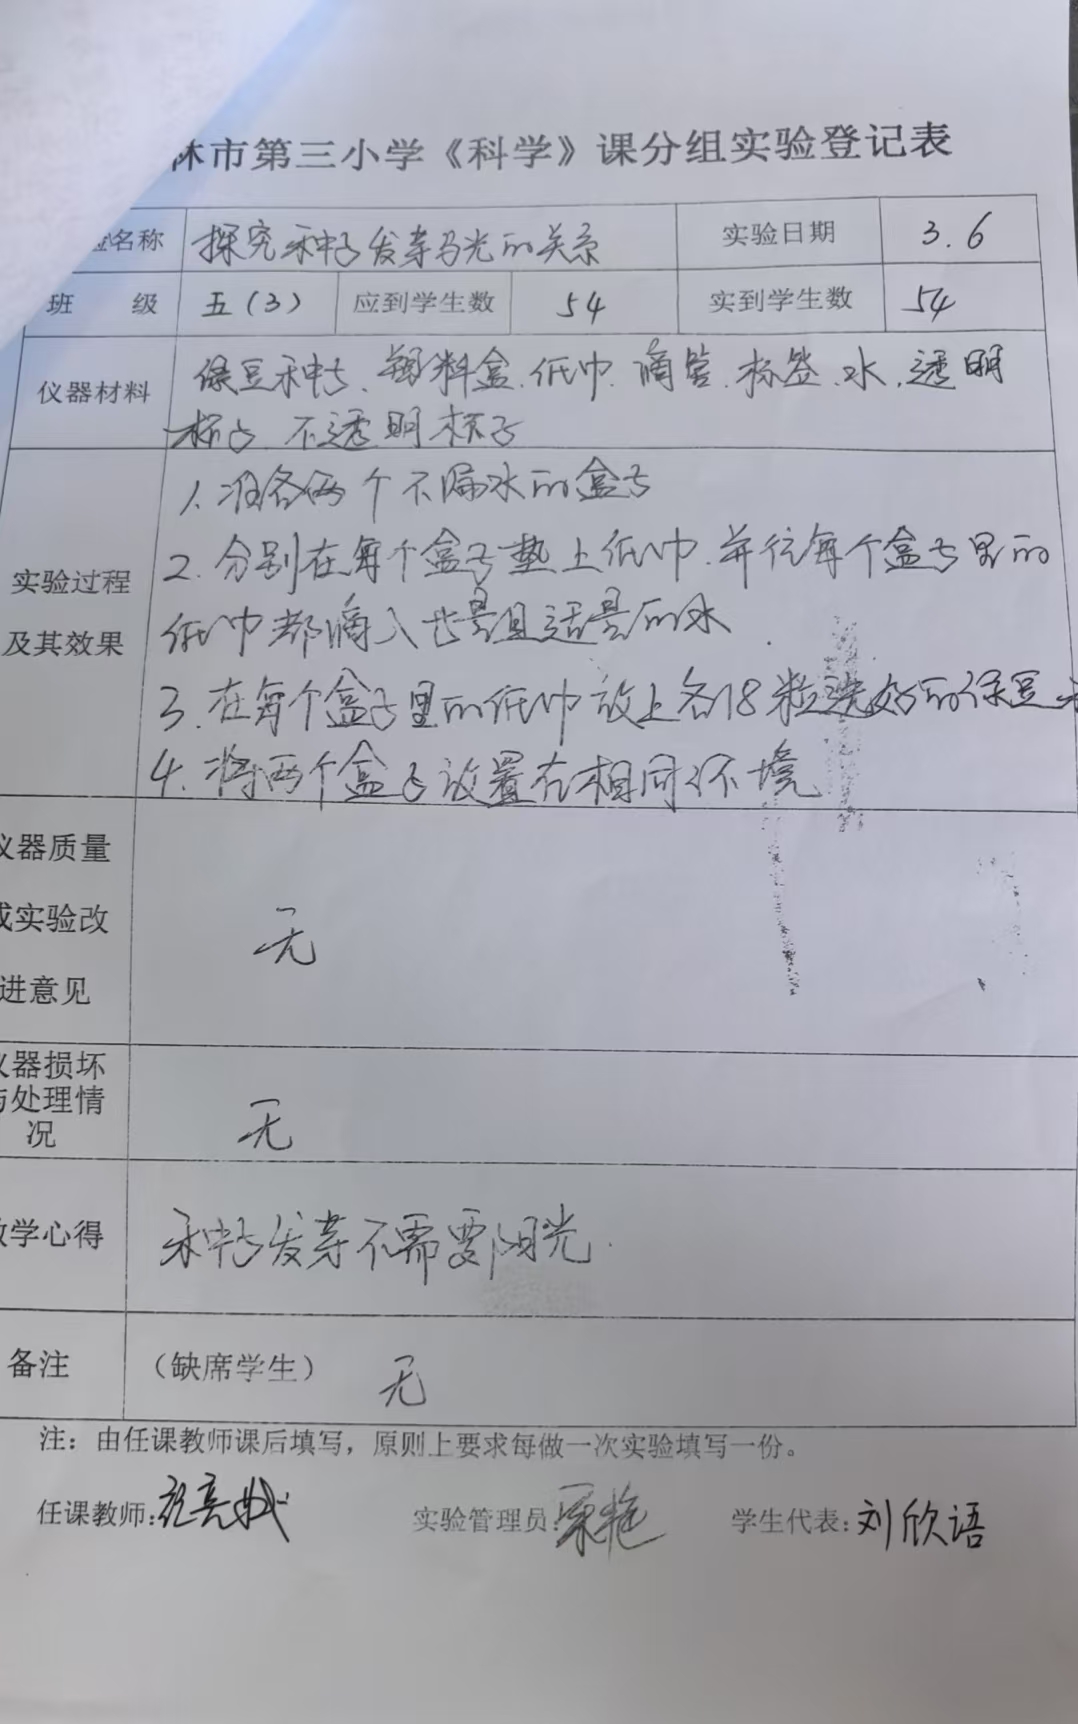 林市第三小学《科学》课分组实验登记表
验名称 探究种子发芽与光的关系 实验日期 3.6
班 级 五(3) 应到学生数 54 实到学生数 54
仪器材料 绿豆种子、塑料盒、纸巾、滴管、标签、水、透明
杯子、不透明杯子
1.准备两个不漏水的盒子
实验过程 2.分别在每个盒子垫上纸巾.并往每个盒子里的
及其效果 纸巾都滴入 适量的水
3.在每个盒子里的纸巾放上各18粒选好的绿豆
4.将两个盒子放置在相同环境
仪器质量
或实验改 无
进意见
仪器损坏
与处理情 无
况
教学心得 种子发芽不需要阳光.
备注 (缺席学生) 无
注:由任课教师课后填写,原则上要求每做一次实验填写一份。
任课教师: 实验管理员: 学生代表:刘欣语